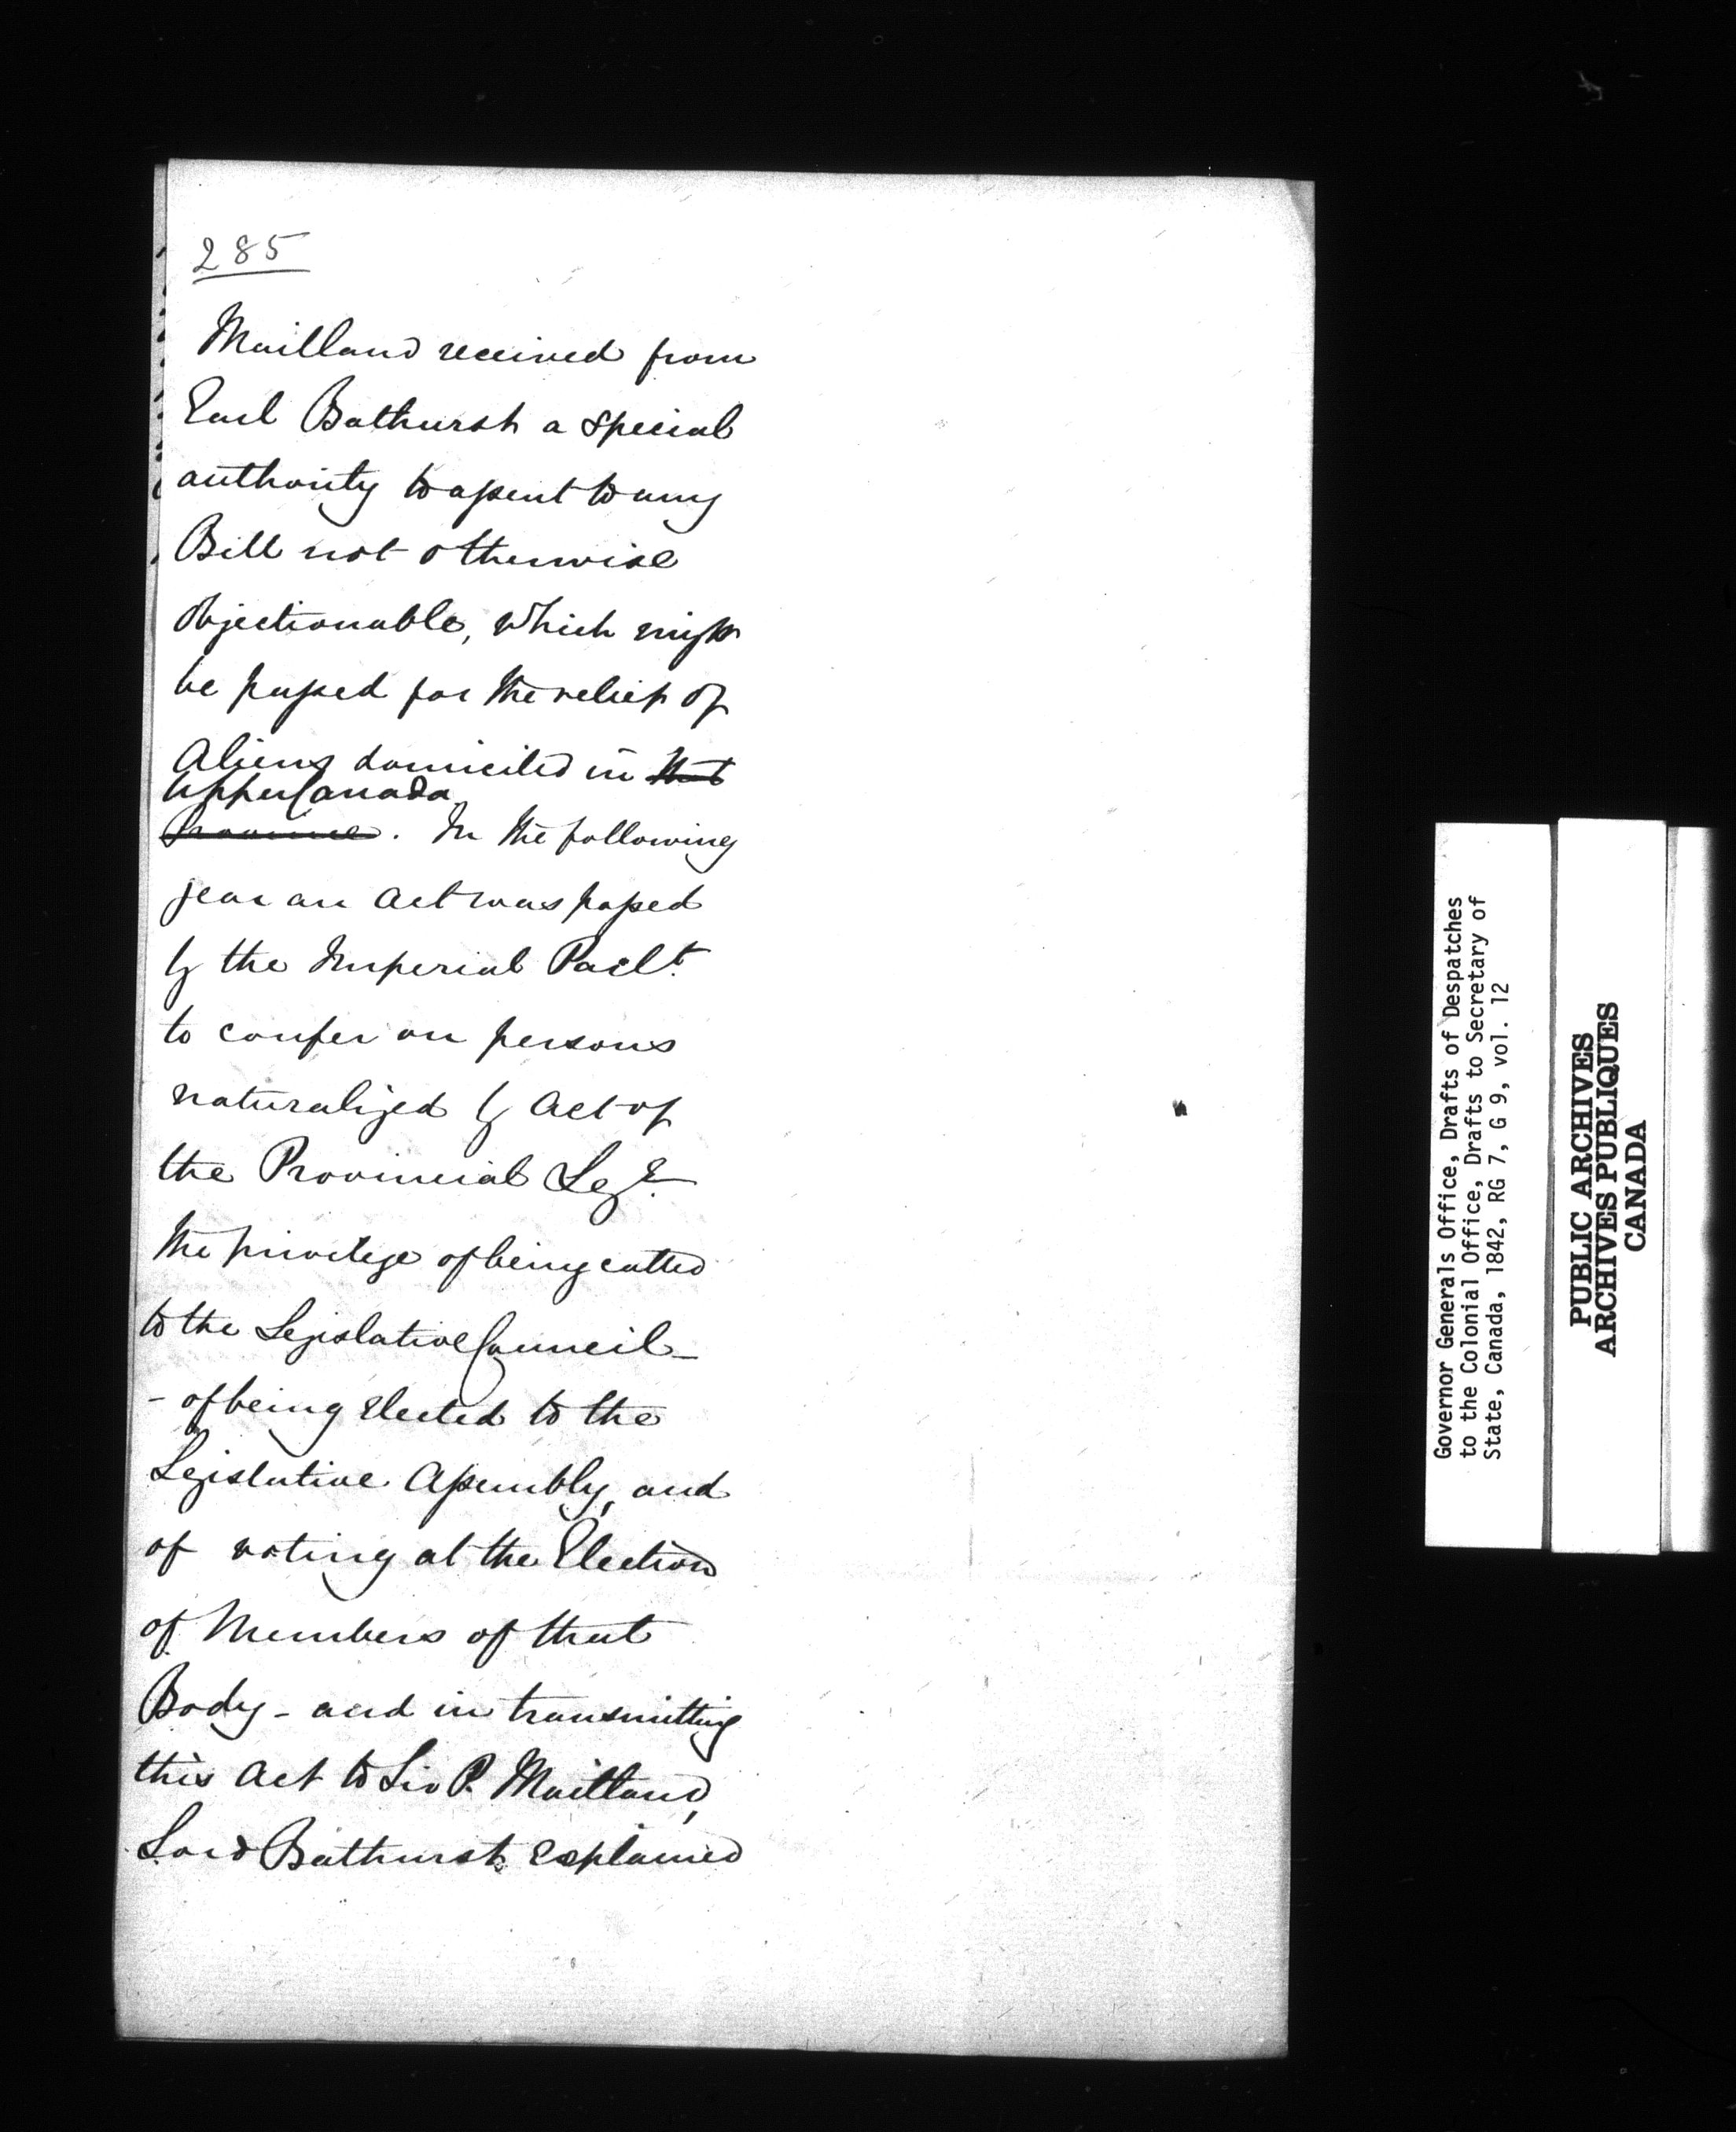 285
Maitland received from
Earl Bathurst a special
authority to assent to any
Bill not otherwise
objectionable, which might
be passed for the relief of
Aliens domiciled in that
Upper Canada
Province. In the following
year an Act was passed
by the Imperial Parlt.
to confer on persons
naturalized by Act of
the Provincial Lege.
the privilege of being called
to the Legislative Council -
- of being elected to the
Legislative Assembly, and
of voting at the Election
of Members of that
Body - and in transmitting
this Act to Sir P. Maitland,
Lord Bathurst explained
Governor Generals Office, Drafts of Despatches
to the Colonial Office, Drafts to Secretary of
State, Canada, 1842, RG 7, G 9, vol. 12
PUBLIC ARCHIVES
ARCHIVES PUBLIQUES
CANADA